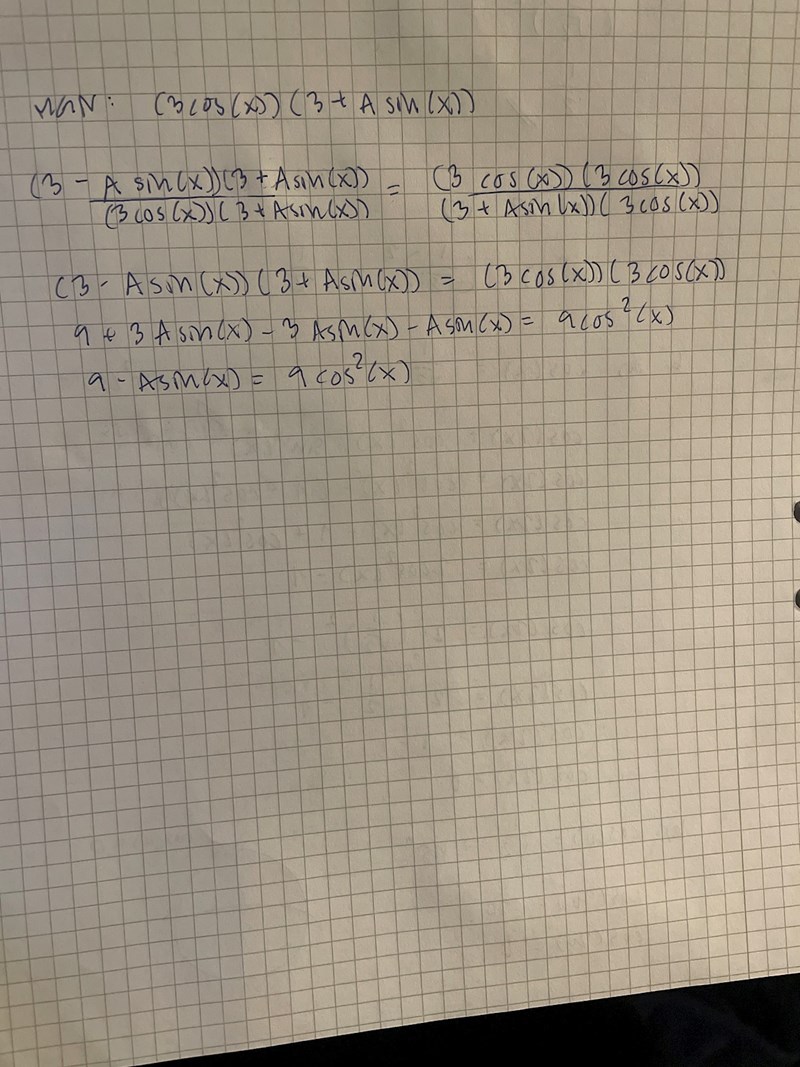 MGN: (3cos(x))(3+Asin(x))
(3-Asin(x))(3+Asin(x)) / (3cos(x))(3+Asin(x)) = (3cos(x))(3cos(x)) / (3+Asin(x))(3cos(x))
(3-Asin(x))(3+Asin(x)) = (3cos(x))(3cos(x))
9+3Asin(x)-3Asin(x)-Asin(x) = 9cos²(x)
9-Asin(x) = 9cos²(x)